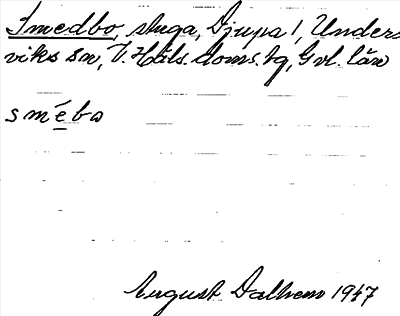 Smedbo, stuga, Djupa 1, Unders
viks sn, V. Häls. doms. tg, Gvl. län
smébo
August Dalhem 1947